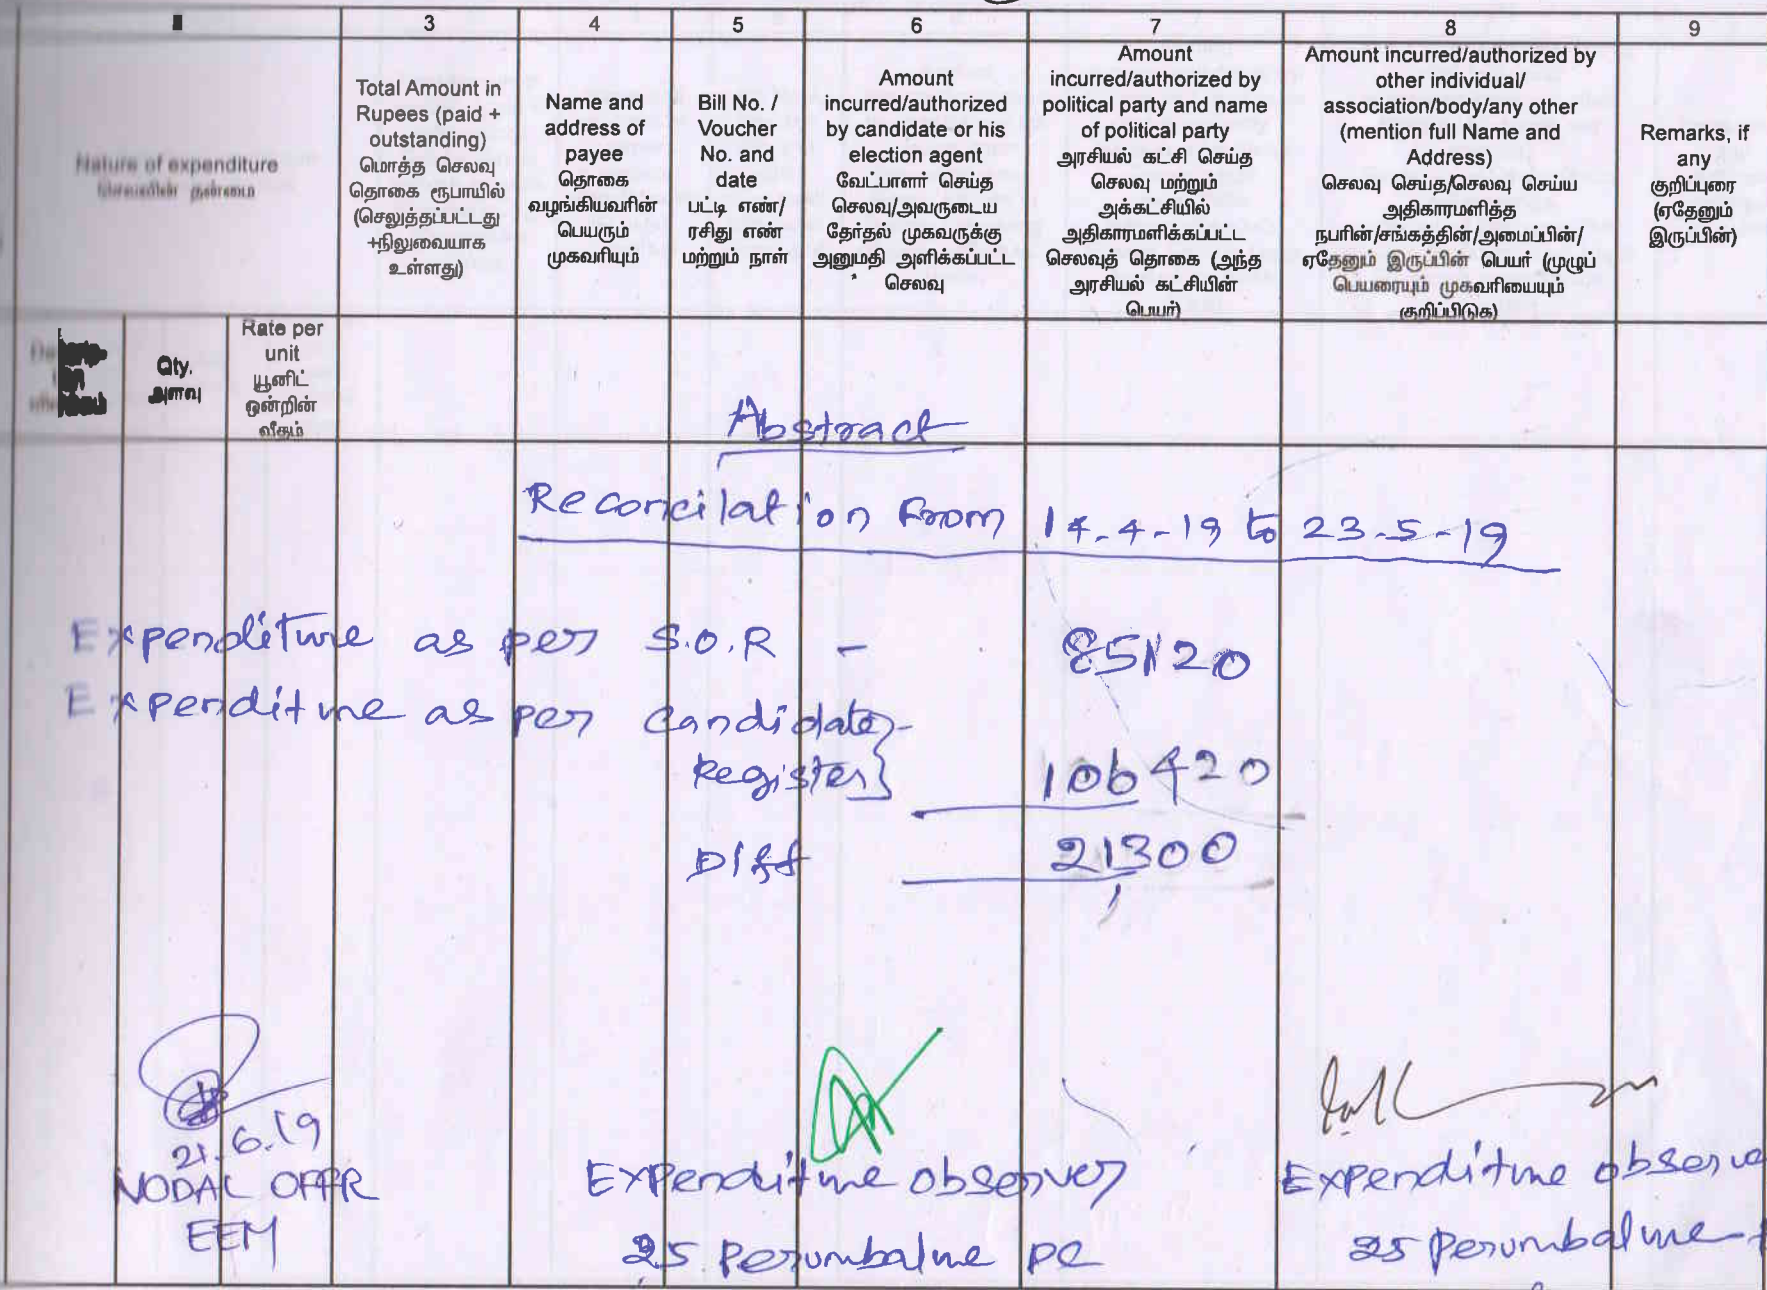 3 4 5 6 7 8 9
Nature of expenditure
செலவின் தன்மை
Total Amount in
Rupees (paid +
outstanding)
மொத்த செலவு
தொகை ரூபாயில்
(செலுத்தப்பட்டது
+நிலுவையாக
உள்ளது)
Name and
address of
payee
தொகை
வழங்கியவரின்
பெயரும்
முகவரியும்
Bill No. /
Voucher
No. and
date
பட்டி எண்/
ரசிது எண்
மற்றும் நாள்
Amount
incurred/authorized
by candidate or his
election agent
வேட்பாளர் செய்த
செலவு/அவருடைய
தேர்தல் முகவருக்கு
அனுமதி அளிக்கப்பட்ட
செலவு
Amount
incurred/authorized by
political party and name
of political party
அரசியல் கட்சி செய்த
செலவு மற்றும்
அக்கட்சியில்
அதிகாரமளிக்கப்பட்ட
செலவுத் தொகை (அந்த
அரசியல் கட்சியின்
பெயர்)
Amount incurred/authorized by
other individual/
association/body/any other
(mention full Name and
Address)
செலவு செய்த/செலவு செய்ய
அதிகாரமளித்த
நபரின்/சங்கத்தின்/அமைப்பின்/
ஏதேனும் இருப்பின் பெயர் (முழுப்
பெயரையும் முகவரியையும்
குறிப்பிடுக)
Remarks, if
any
குறிப்புரை
(ஏதேனும்
இருப்பின்)
Qty.
அளவு
Rate per
unit
யூனிட்
ஒன்றின்
வீதம்
Abstract
Reconcilation From 14-4-19 to 23-5-19
Expenditure as per S.O.R - 85120
Expenditure as per Candidate
Register} 106420
Diff 21300
21.6.19
NODAL OFFR
EEM
Expenditure observer
25 Perumbalure PC
Expenditure observe
25 Perumbalure -